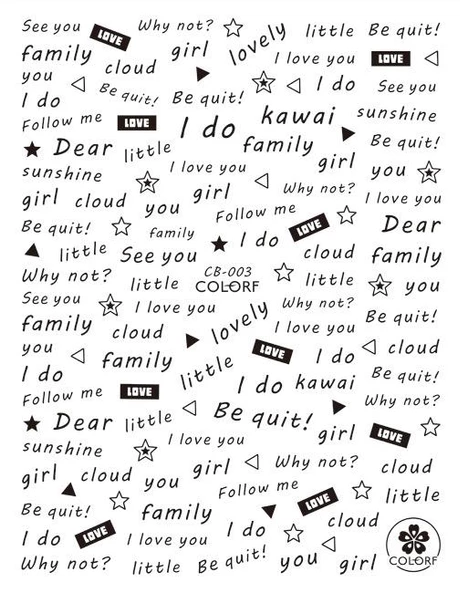 See you LOVE Why not? lovely little Be quit!
family cloud girl I love you LOVE
you Be quit! Be quit! I do See you
I do kawai sunshine
Follow me LOVE I do family Be quit!
Dear little girl
sunshine I love you Why not? you
girl cloud you girl Follow me I love you
Be quit! family I do LOVE Dear
little See you cloud family
Why not? little CB-003 little you
COLORF
See you I love you lovely Why not? Be quit!
family cloud I love you
you family LOVE I do cloud
I do little I do kawai Be quit!
Follow me LOVE Why not?
Dear little Be quit! girl LOVE
sunshine I love you
girl cloud you girl Why not? cloud
Be quit! family Follow me LOVE little
I do LOVE I love you I do cloud
Why not? little Be quit! you girl COLORF